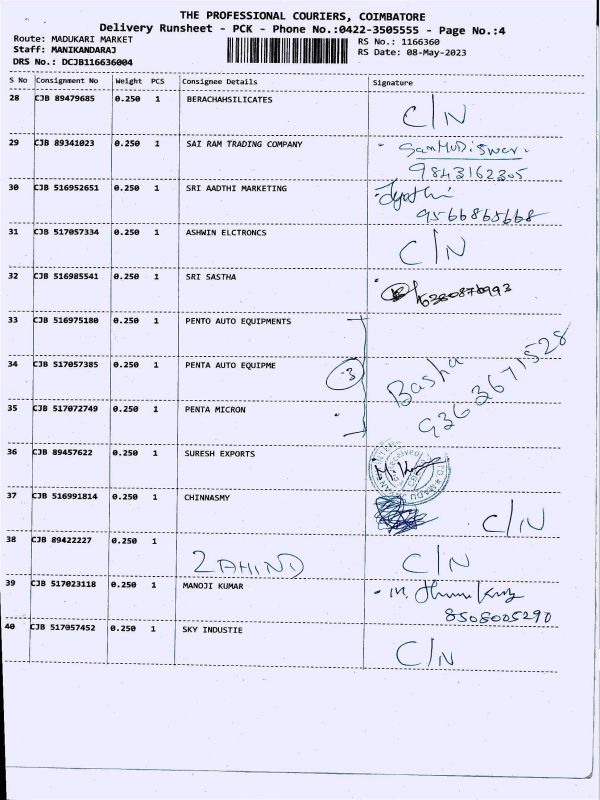 THE PROFESSIONAL COURIERS, COIMBATORE
Delivery Runsheet - PCK - Phone No.:0422-3505555 - Page No.:4
Route: MADUKARI MARKET RS No.: 1166360
Staff: MANIKANDARAJ RS Date: 08-May-2023
DRS No.: DCJB116636004
S No Consignment No Weight PCS Consignee Details Signature
28 CJB 89479685 0.250 1 BERACHAHSILICATES C/N
29 CJB 89341023 0.250 1 SAI RAM TRADING COMPANY
9843162305
30 CJB 516952651 0.250 1 SRI AADTHI MARKETING Jyothi
9566865668
31 CJB 517057334 0.250 1 ASHWIN ELCTRONCS C/N
32 CJB 516985541 0.250 1 SRI SASTHA
33 CJB 516975180 0.250 1 PENTO AUTO EQUIPMENTS
34 CJB 517057385 0.250 1 PENTA AUTO EQUIPME 3 Basha
9363671528
35 CJB 517072749 0.250 1 PENTA MICRON
36 CJB 89457622 0.250 1 SURESH EXPORTS
37 CJB 516991814 0.250 1 CHINNASMY C/N
38 CJB 89422227 0.250 1 ZAHIND C/N
39 CJB 517023118 0.250 1 MANOJI KUMAR
8508005290
40 CJB 517057452 0.250 1 SKY INDUSTIE C/N